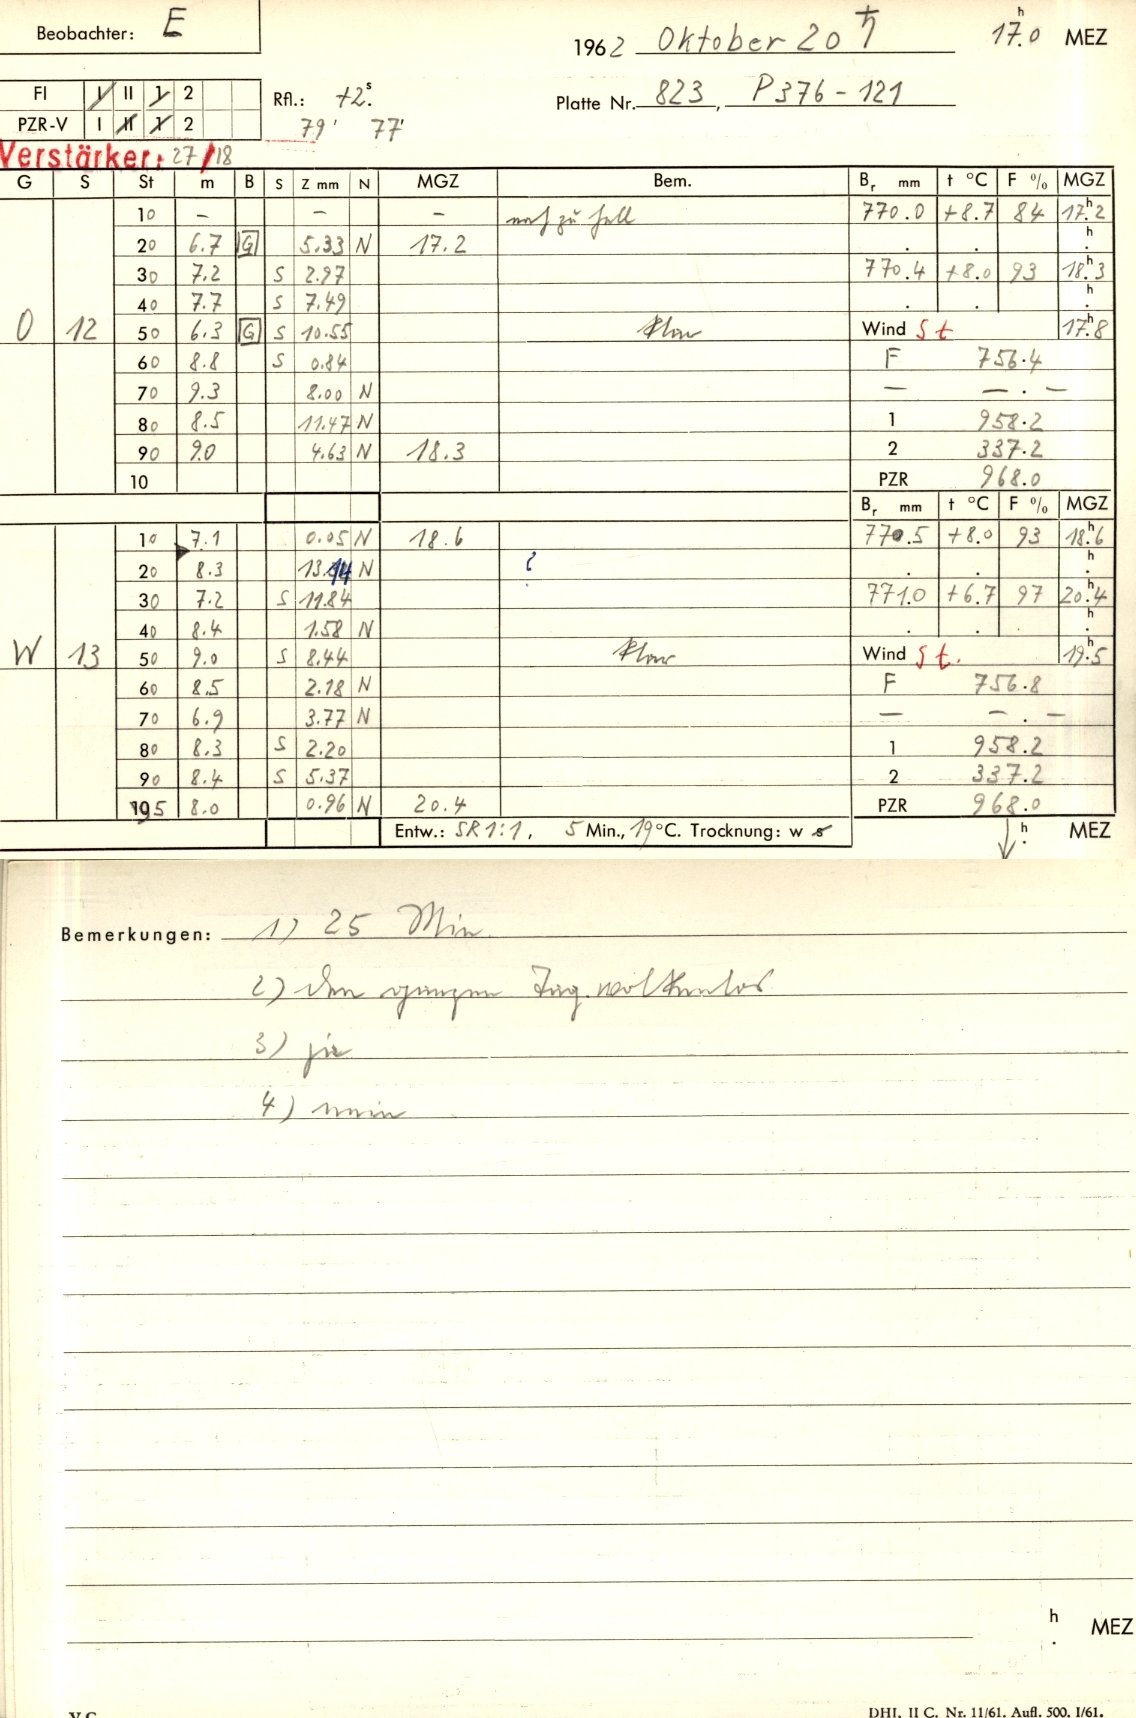 Beobachter: E
1962 Oktober 20 ♄ 17.0 h MEZ
FI I II 1 2
PZR-V I II 1 2
Rfl.: +2.s
79' 77'
Platte Nr. 823, P376-121
Verstärker: 27/18
G S St m B S Z mm N MGZ Bem. Br mm t °C F % MGZ
10 – – – noch zu hell 770.0 +8.7 84 17.h2
20 6.7 G 5.33 N 17.2 . . h.
30 7.2 S 2.97 770.4 +8.0 93 18.h3
40 7.7 S 7.49 . . h.
O 12 50 6.3 G S 10.55 klar Wind St 17.h8
60 8.8 S 0.84 F 756.4
70 9.3 8.00 N — — . —
80 8.5 11.47 N 1 958.2
90 9.0 4.63 N 18.3 2 337.2
10 PZR 968.0
Br mm t °C F % MGZ
10 7.1 0.05 N 18.6 770.5 +8.0 93 18.h6
20 8.3 13.14 N ? . . h.
30 7.2 S 11.84 771.0 +6.7 97 20.h4
40 8.4 1.58 N . . h.
W 13 50 9.0 S 8.44 klar Wind St. 19.h5
60 8.5 2.18 N F 756.8
70 6.9 3.77 N — — . —
80 8.3 S 2.20 1 958.2
90 8.4 S 5.37 2 337.2
195 8.0 0.96 N 20.4 PZR 968.0
Entw.: SR 1:1, 5 Min., 19°C. Trocknung: w s h. MEZ
Bemerkungen: 1) 25 Min.
2) den ganzen Tag wolkenlos
3) ja
4) nein
h. MEZ
DHI, II C, Nr. 11/61. Aufl. 500. I/61.